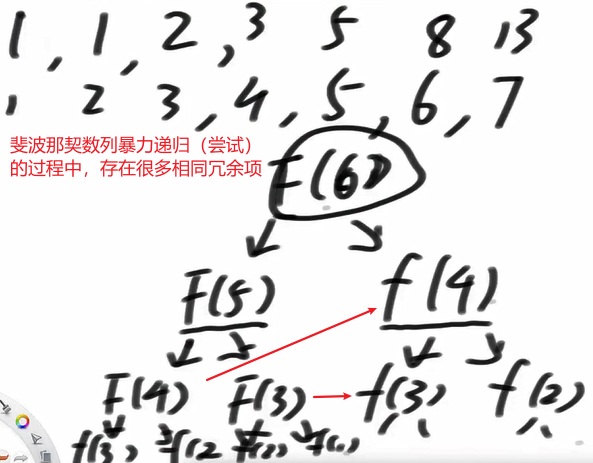 1, 1, 2, 3 5 8 13
1 2 3, 4, 5, 6, 7
斐波那契数列暴力递归（尝试）
的过程中，存在很多相同冗余项
F(6)
F(5) f(4)
F(4) F(3) f(3) f(2)
f(3) f(2 f(2) f(1)